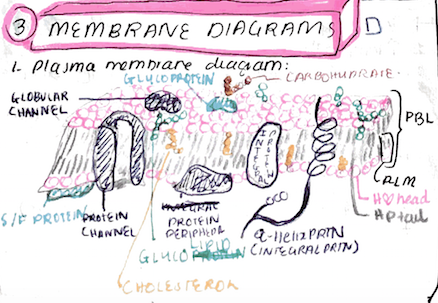 3 MEMBRANE DIAGRAMS D
1. Plasma membrane diagram:
GLYCOPROTEIN
CARBOHYDRATE.
GLOBULAR
CHANNEL
PBL
INTEGRAL
PROTEIN
S/F PROTEIN
PROTEIN
CHANNEL
INTEGRAL
PROTEIN
PERIPHERAL
GLYCOLIPID
α-Helix PRTN
(INTEGRAL PRTN)
H♡ head
HP tail
CHOLESTEROL